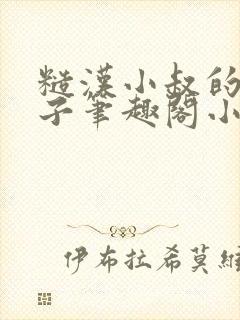 糙漢小叔的
子筆趣閣小
伊布拉希莫維